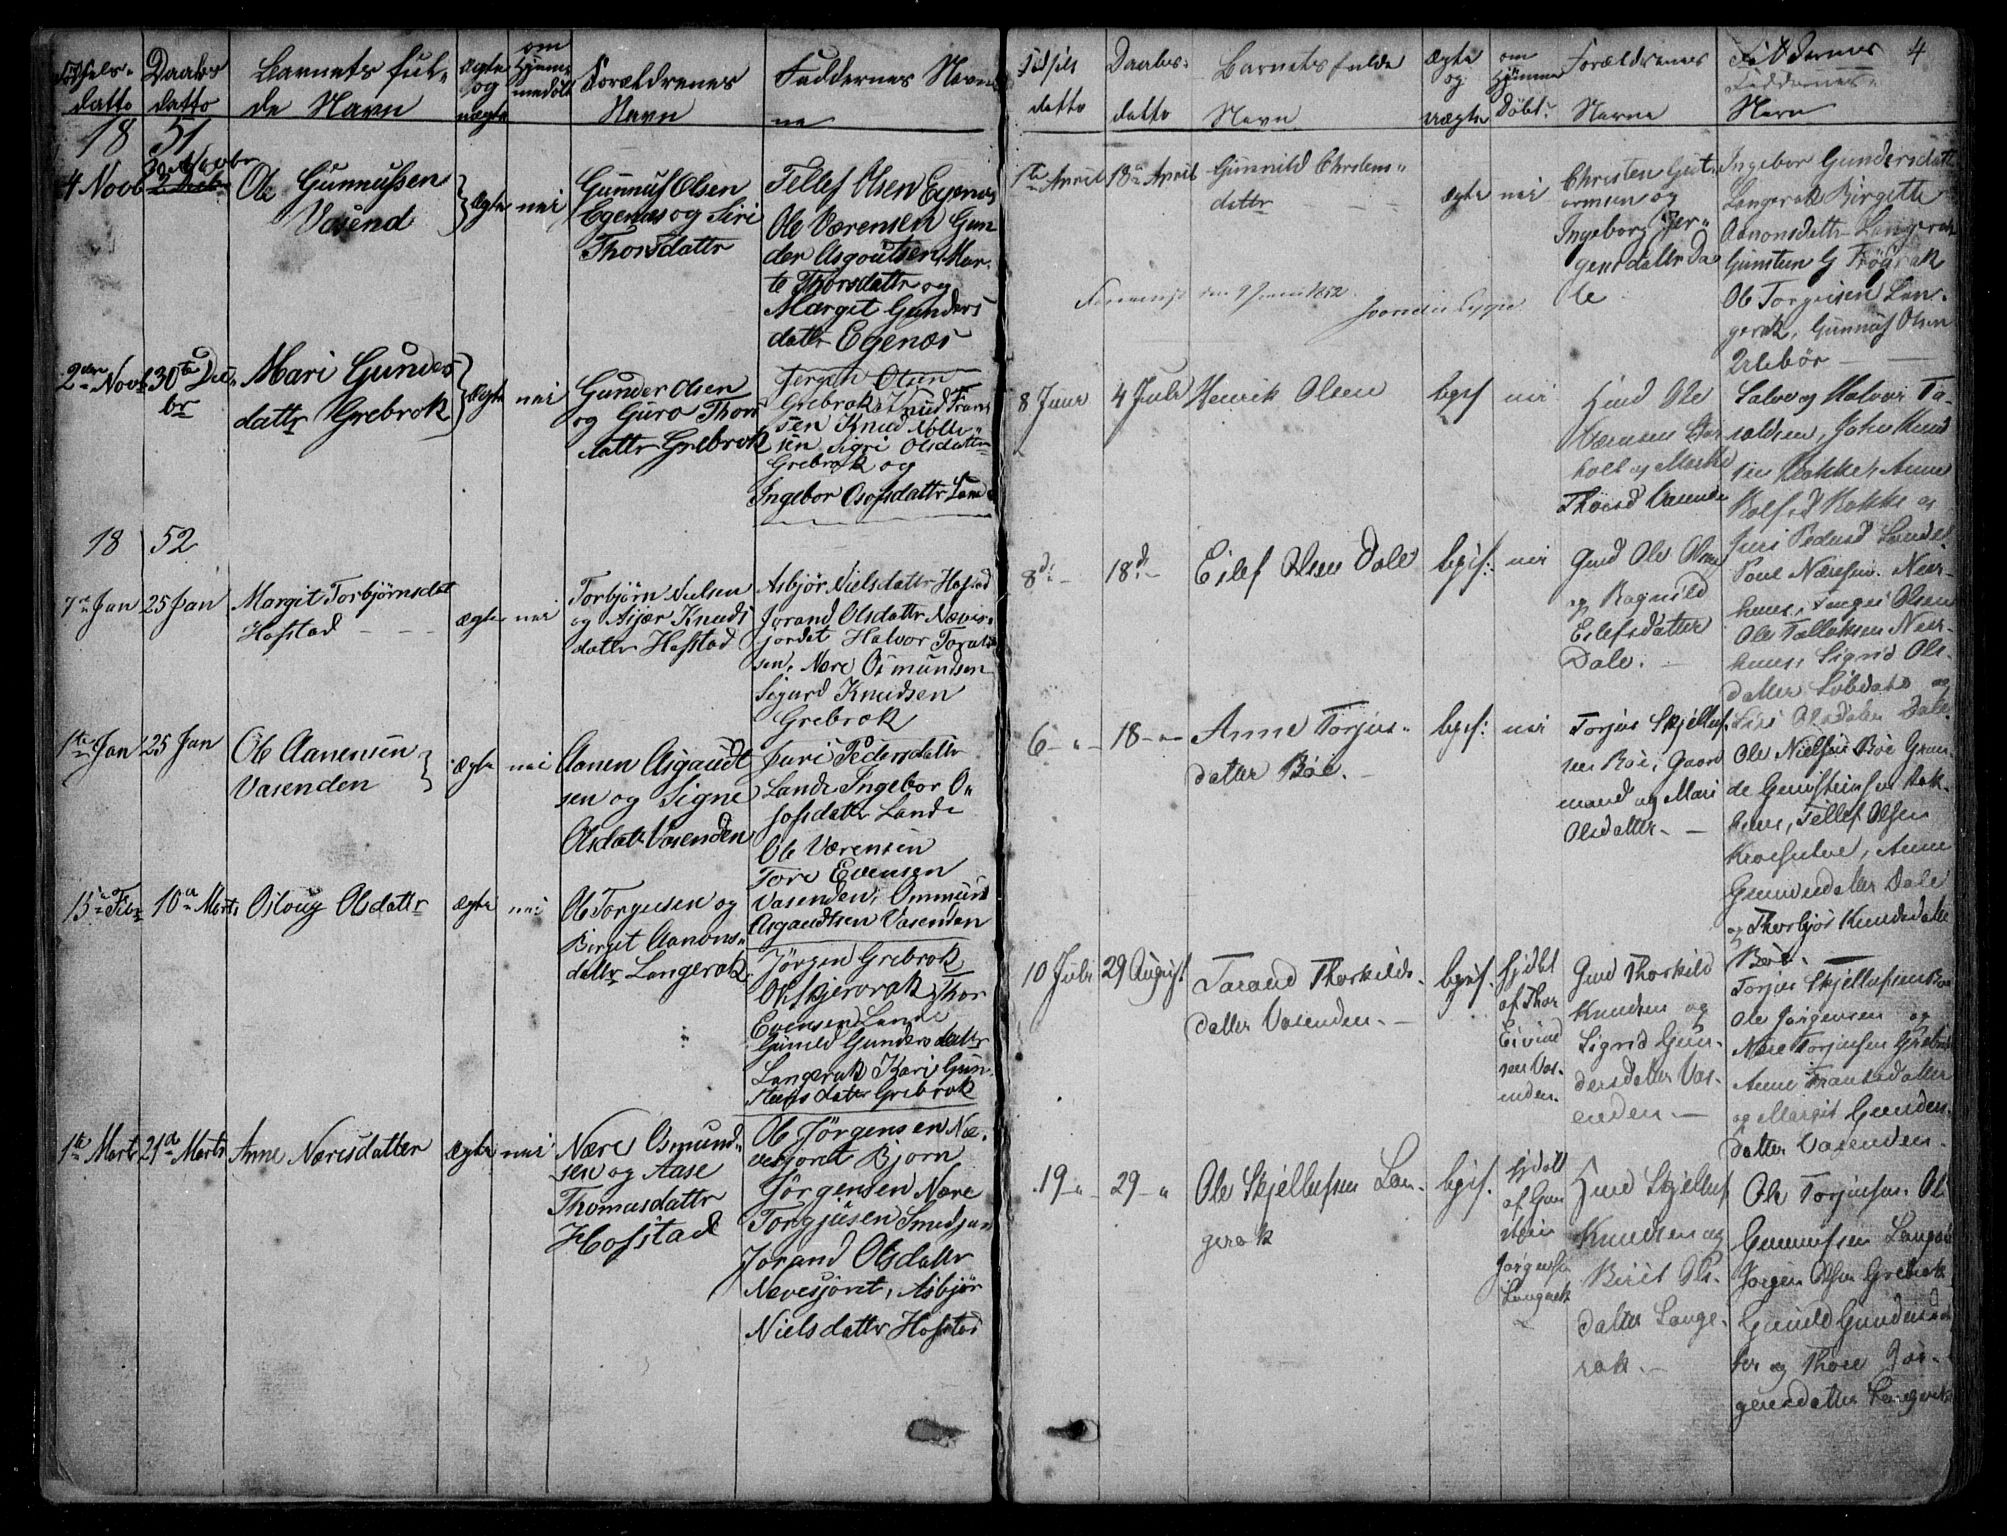 Fødsels-
datto
Daabs
datto
Barnets ful-
de Navn
ægte
og
uægte
om
hjemme
døbt
Forældrenes
Navn
Faddernes Navn
18 51
4 Novb
Ole Gunnufsen
Vasend
ægte
nei
Gunnuf Olsen
Egenæs og Siri
Thorsdattr
Tellef Olsen Egenæs
Ole Værensen Gun
der Asgoutsen, Mar-
te Thorsdattr og
Margit Gunders
dattr Egenæs
2den Novb
30te Dec
br
Mari Gunders
dattr Grebrok
ægte
nei
Gunder Olsen
og Guro Thors
dattr Grebrok
Jørgen Olsen
Grebrok, Knud Frans
sen Knud
sen Sigri Olsdattr
Grebrok og
Ingebor Osofsdattr Lande
18 52
7de Jan
25 Jan
Margit Torbjørnsdat
Hofstad
ægte
nei
Torbjørn Nielsen
og Asjær Knuds
dattr Hofstad
Asbjør Nielsdattr Hofstad
Jorand Olsdattr Næves-
jordet Halvor Torald
sen, Nære Osmundsen
Sigurd Knudsen
Grebrok
1ste Jan
25 Jan
Ole Aanensen
Vasenden
ægte
nei
Aanen Asgaudt
sen og Signe
Olsdatr Vasenden
Juri Pedersdattr
Lande Ingebor O-
sofsdattr Lande
Ole Værensen
Tore Evensen
Vasenden, Ommund
Asgaudtsen Vasenden
15de Feb
10de Marts
Osloug Olsdattr
ægte
nei
Ole Torgusen og
Birgit Aanons-
dattr Langerak
Jørgen Grebrok
Ole Skjerorak Thor
Evensen Lande
Gunild Gundersdattr
Langerak Kari Gun-
steensdatter Grebrok
1ste Marts
21de Marts
Anne Næresdatter
ægte
nei
Nære Osmund-
sen og Aase
Thomasdattr
Hofstad
Ole Jørgensen Næ-
vesjoret Bjørn
Jørgensen Nære
Torgjusen Smedjan
Jorand Olsdattr
Nævesjoret, Asbjør
Nielsdattr Hofstad
Fødsels
datto
Daabs-
datto
Barnets fulde
Navn
ægte
og
uægte
om
hjemme
døbt
Forældrenes
Navne
Faddernes
Faddernes
Navn
4
1ste April
18de April
Gunnild Christens-
dattr
ægte
nei
Christen Gut-
ormsen og
Ingeborg Jør-
gensdattr Da
le
Ingebor Gundersdattr
Langerak Birgitte
Aanonsdattr Langerak
Gunsten G Frøsrak
Ole Torgrisen Lan-
gerak, Gunnuf Olsen
Urlebør
den 9 Juni 1852
8 Juni
4 Juli
Henrik Olsen
bgif
nei
Hmd Ole
Værensen
holt og Marthe
Thorsd Vasende
Salve og Halvor Ta-
raldsen, John Knud
sen Bakke, Anne
Rolfsd Bakke og
Juri Pedersd Lande
8 d: -
18 d. -
Eilef Olsen Dale
bgif:
nei
Gmd Ole Olsen
og Ragnild
Eilefsdatter
Dale. -
Poul Næresen Neer-
Tarjei Olsen
Ole Tallaksen Neer-
Sigrid Ols-
datter og
Siri Olsdatter Dale
6 - " -
18 - " -
Anne Torjus-
datter Bøe. -
bgif:
nei
Torjus Skjelluf-
sen Bøe, Gaard
mand og Mari
Olsdatter. -
Ole Nielsen Bøe Gun-
de Gunsteinsen
Tellef Olsen
Anne
Gunnersdatter Dale
og Thorbjør Knudsdatter
Bøe.
10 Juli
29 August
Tarand Thorkilds-
datter Vasenden. -
bgif.
hjdbt
af Thor
Eivind
sen Vas-
enden.
Gmd Thorkild
Knudsen og
Sigrid Gun-
dersdatter Vas-
enden. -
Torjus Skjellufsen Bøe
Ole Jørgensen og
Nære Torjusen Grebrok
Anne Frantsdatter
og Margit Gunders-
datter Vasenden.
19 - " -
29 - "
Ole Skjellufsen Lan-
gerak
bgif.
hjdøbt
af Gun
stein
Jørgensen
Langerak
Hmd Skjelluf
Knudsen og
Birit Ols-
datter Lange-
rak. -
Ole Torjusen. Ol
Gunnufsen Langerak
Jørgen Olsen Grebrok
Gunild Gundersdat
ter og Thore Jør-
gensdatter Langerak